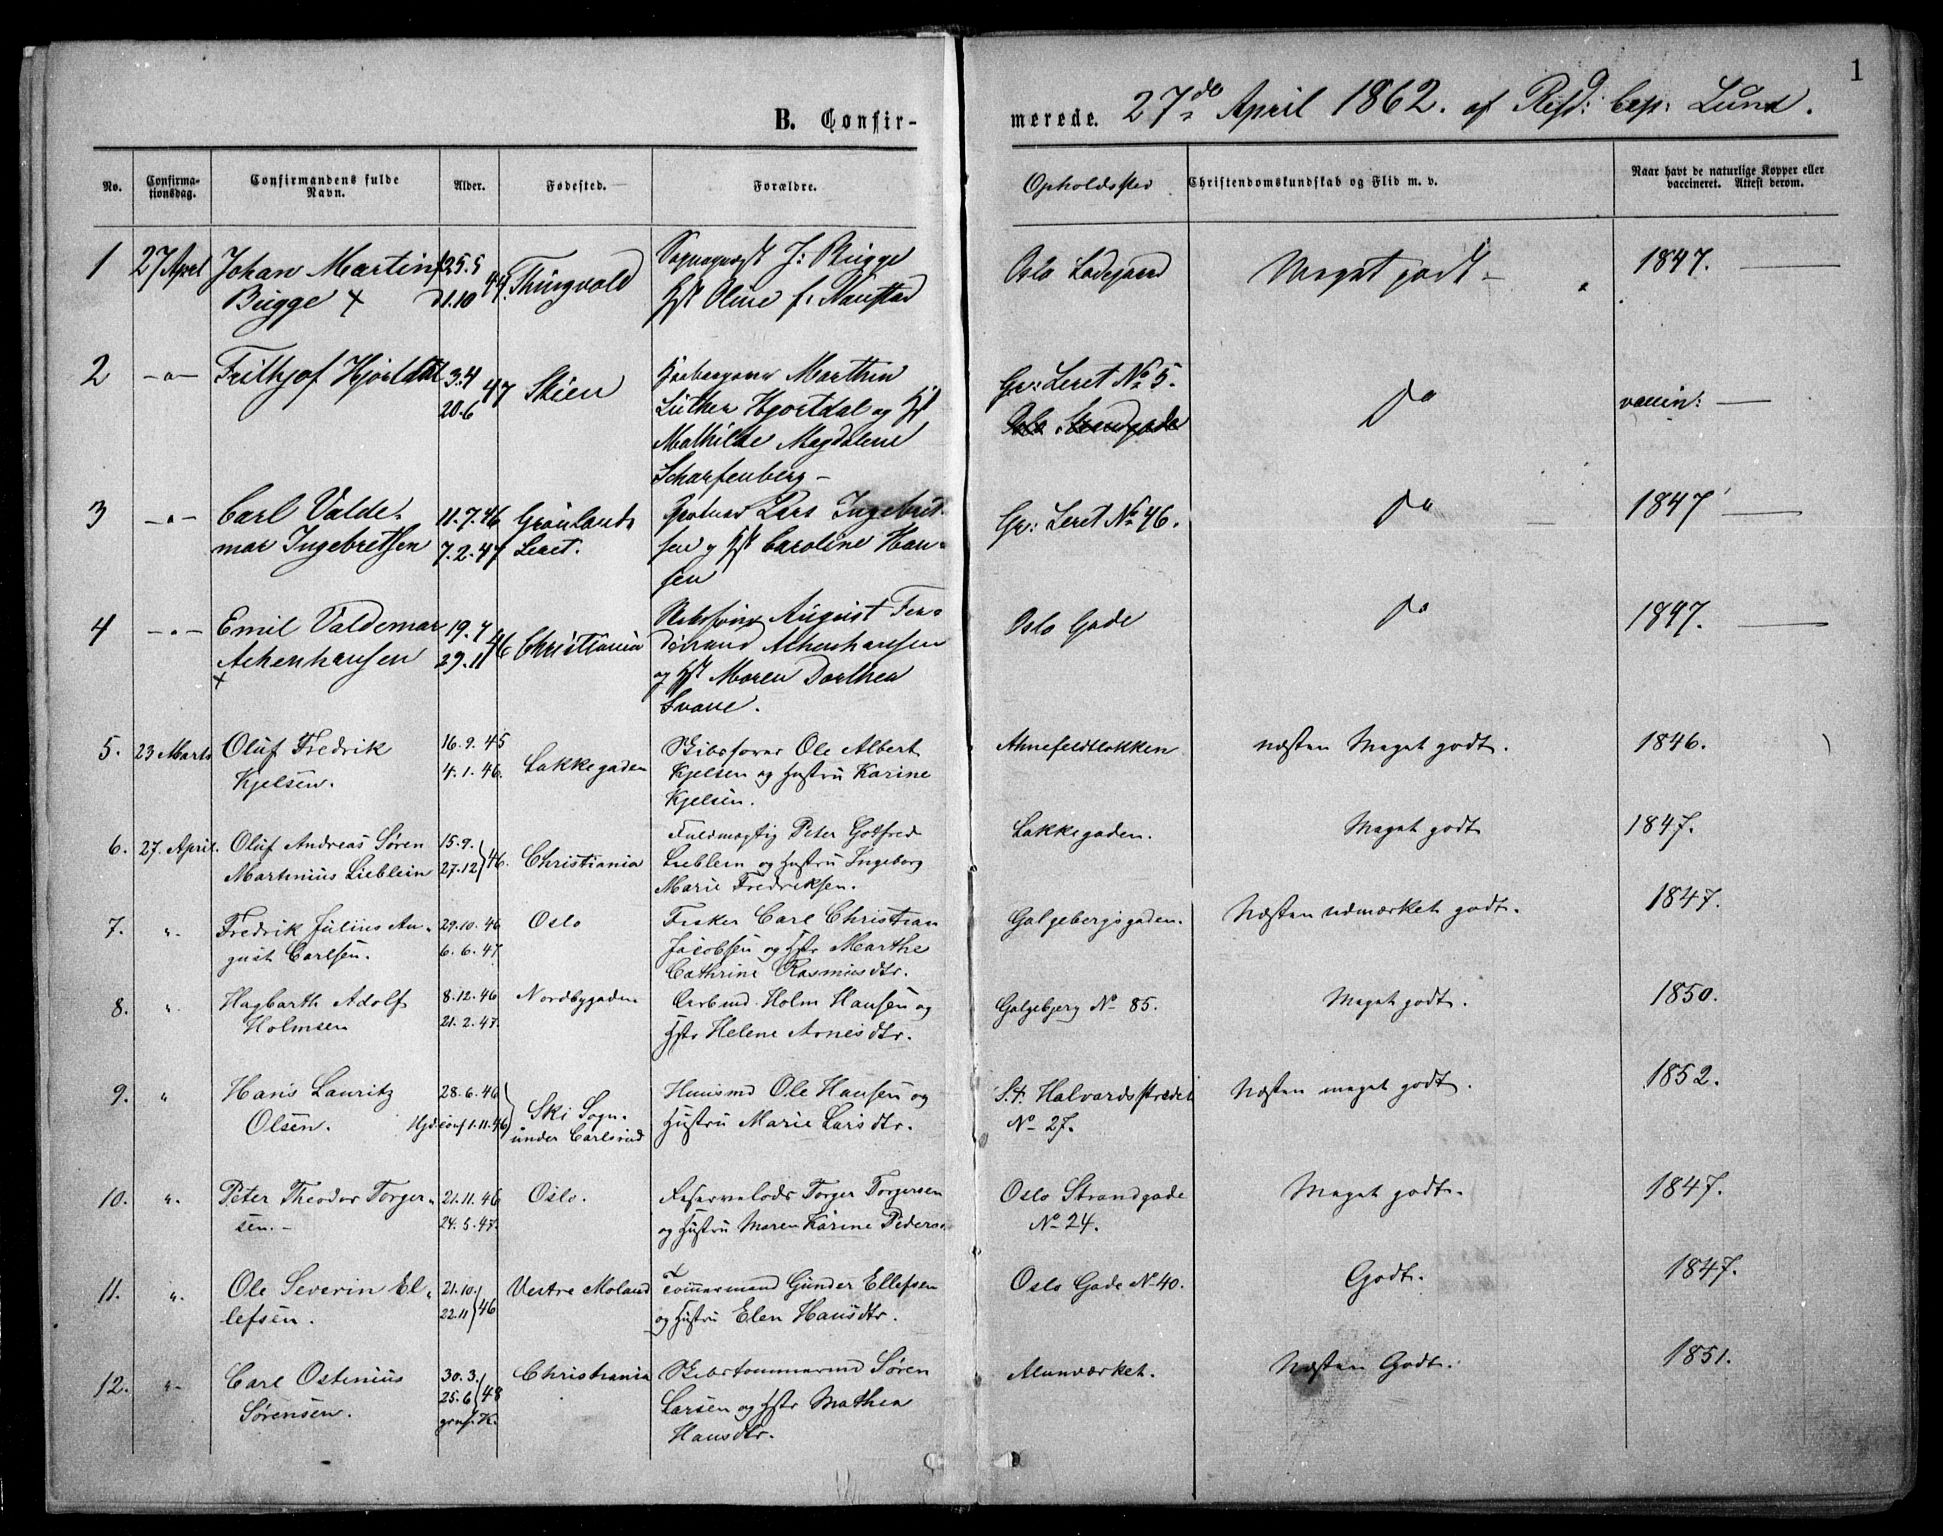 1
B. Confir-
merede. 27de April 1862. af Resd: Cap: Lund.
No.
Confirma-
tionsdag.
Confirmandens fulde
Navn.
Alder.
Fødested.
Forældre.
Opholdssted
Christendomskundskab og Flid m. v.
Naar havt de naturlige Kopper eller
vaccineret. Attest derom.
1 27 April Johan Martin f 25.5 44. Thingvold J: Bugge Oslo Ladegaard Meget godt - 1847. —
Bugge + d 1.10 Hst Oline f: Naustad
2 -"- Frithjof Hjortdal 3.4 47 Skien Marthin Gr: Leret No 5. do vaccin: —
20.6 Luther Hjortdal og Hst Oslo Strandgade
Mathilde Magdalene
Scharfenberg -
3 -"- Carl Valde- 11.7.46 Grønlands Lars Ingebret- Gr: Leret No 46. do 1847 —
mar Ingebretsen 7.2.47 Leret. sen og Hst Caroline Han-
sen
4 -"- Emil Valdemar 19.7 46 Christiania August Fer- Oslo Gade do 1847. —
Achenhausen 29.11 dinand Achenhausen
+ og Hst Maren Dorthea
Svane.
5. 23 Marts Oluf Fredrik 16.9.45 Lakkegaden Skibsfører Ole Albert Ahnefeldtløkken næsten Meget godt. 1846.
Kjelsen. 4.1.46. Kjelsen og Hustru Karine
Kjelsen.
6. 27. April. Oluf Andreas Søren 15.9. 46. Christiania Fuldmægtig Peter Gotfred Lakkegaden. Meget godt 1847.
Martinius Lieblein 27.12 Lieblein og Hustru Ingeborg
Marie Fredriksen.
7. ". Fredrik Julius Au- 29.10.46 Oslo Fisker Carl Christian Galgebergsgaden. Næsten udmærket godt. 1847.
gust Carlsen. 6.6.47 Jacobsen og Hstr Marthe
Cathrine Rasmusdtr.
8. ". Hagbarth Adolf 8.12.46 Nordbygaden Arbmd. Holm Hansen og Galgebjerg No 85. Meget godt. 1850.
Holmsen 21.2.47. Hstr Helene Arnesdtr.
9. " Hans Lauritz 28.6.46 Ski Sogn. Huusmd Ole Hansen og St. Halvardsstrædet Næsten meget godt. 1852.
Olsen. Hjd. conf 1.11.46 under Carlsrud Hustru Marie Larsdtr. No 27.
10. ". Peter Theodor Torger- 21.11.46 Oslo. Reservelods Torger Torgersen Oslo Strandgade Meget godt. 1847.
sen.- 24.5.47. og Hustru Maren Karine Peders- No 24.
11. ". Ole Severin El- 21.10. 46 Vestre Moland Tømmermand Gunder Ellefsen Oslo Gade No 40. Godt. 1847.
lefsen. 22.11 og Hustru Elen Hansdtr.
12. "- Carl Ostinius 30.3. 48 Christiania Skibstømmermd Søren Alunværket. Næsten Godt. 1851.
Sørensen. 25.6 Larsen og Hstr Mathea
Hansdtr.